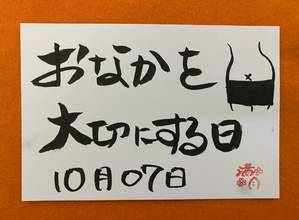 おなかを
大切にする日
10月07日